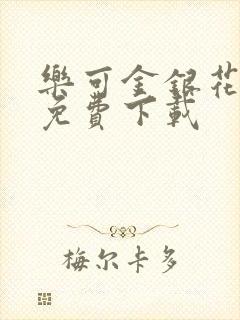 樂可金銀花
免費下載
梅尔卡多